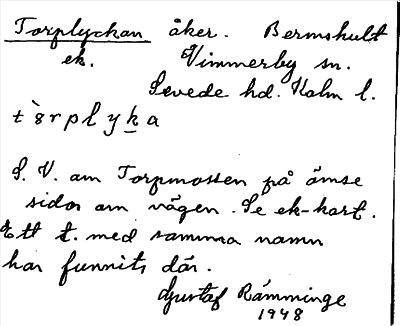 Torplyckan åker. Bermshult
ek. Vimmerby sn.
Sevede hd. Kalm l.
S. V. om Torpmossen på ömse
sidor om vägen. Se ek-kart.
Ett t. med samma namn
har funnits där.
Gustaf Rämminge
1948